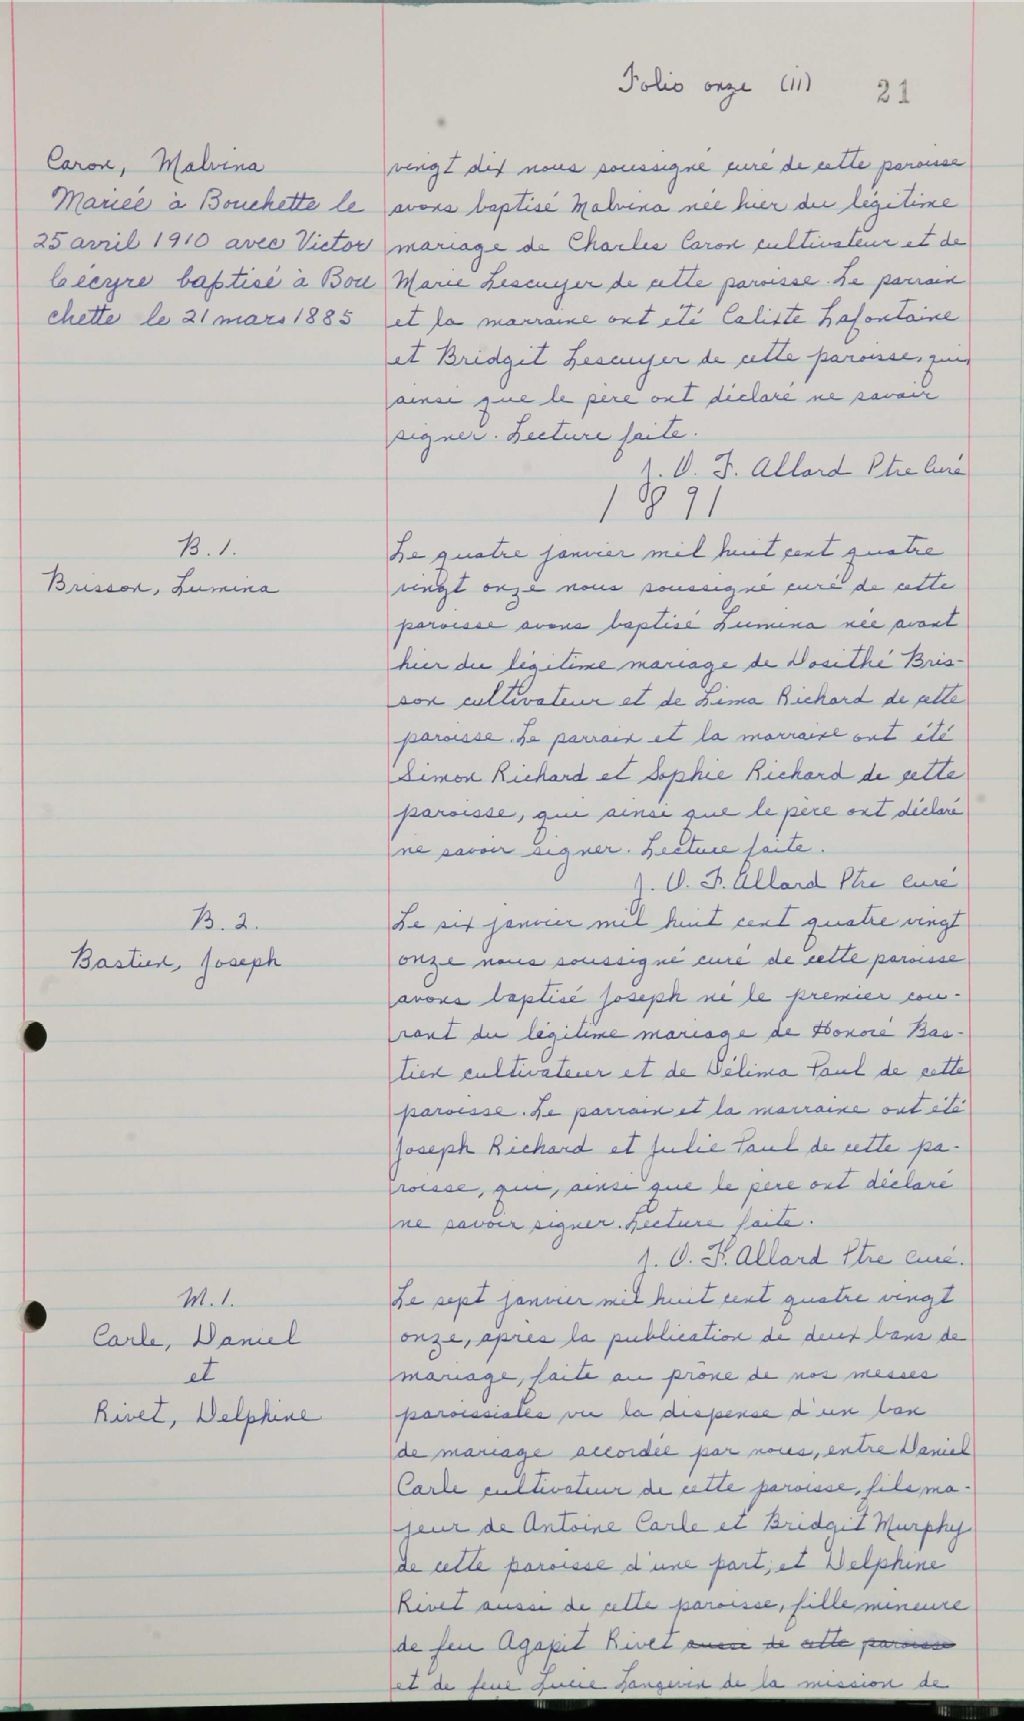 Folio onze (11) 21
Caron, Malvina
Mariée à Bouchette le
25 avril 1910 avec Victor
Lécyre baptisé à Bou
chette le 21 mars 1885
vingt dix nous soussigné curé de cette paroisse
avons baptisé Malvina née hier du légitime
mariage de Charles Caron cultivateur et de
Marie Lescuyer de cette paroisse. Le parrain
et la marraine ont été Calixte Lafontaine
et Bridgit Lescuyer de cette paroisse, qui,
ainsi que le père ont déclaré ne savoir
signer. Lecture faite.
J. O. F. Allard Ptre Curé
1891
B. 1.
Brisson, Lumina
Le quatre janvier mil huit cent quatre
vingt onze nous soussigné curé de cette
paroisse avons baptisé Lumina née avant
hier du légitime mariage de Dosithé Bris-
son cultivateur et de Lima Richard de cette
paroisse. Le parrain et la marraine ont été
Simon Richard et Sophie Richard de cette
paroisse, qui ainsi que le père ont déclaré
ne savoir signer. Lecture faite.
J. O. F. Allard Ptre curé
B. 2.
Bastien, Joseph
Le six janvier mil huit cent quatre vingt
onze nous soussigné curé de cette paroisse
avons baptisé Joseph né le premier cou-
rant du légitime mariage de Honoré Bas-
tien cultivateur et de Délima Paul de cette
paroisse. Le parrain et la marraine ont été
Joseph Richard et Julie Paul de cette pa-
roisse, qui, ainsi que le père ont déclaré
ne savoir signer. Lecture faite.
J. O. F. Allard Ptre curé.
M. 1.
Carle, Daniel
et
Rivet, Delphine
Le sept janvier mil huit cent quatre vingt
onze, après la publication de deux bans de
mariage, faite au prône de nos messes
paroissiales vu la dispense d'un ban
de mariage accordée par nous, entre Daniel
Carle cultivateur de cette paroisse, fils ma-
jeur de Antoine Carle et Bridgit Murphy
de cette paroisse d'une part; et Delphine
Rivet aussi de cette paroisse, fille mineure
de feu Agapit Rivet aussi de cette paroisse
et de feue Lucie Langevin de la mission de